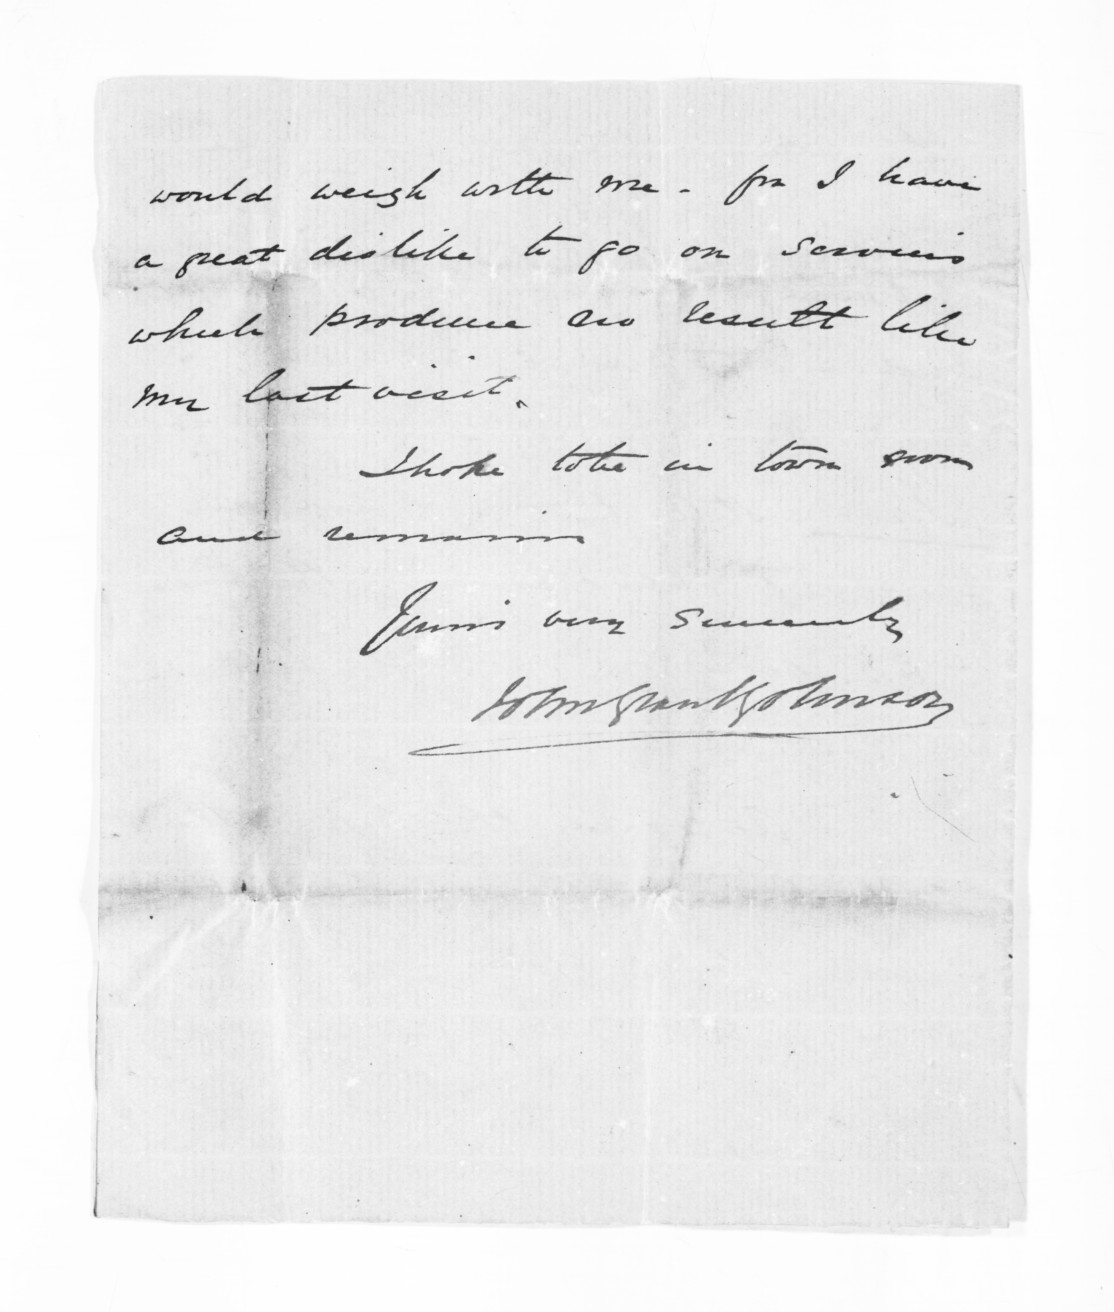 would weigh with me - for I have
a great dislike to go on services
which produce no result like
my last visit.
I hope to be in town soon
and remain
Yours very sincerely
John Grant Johnson